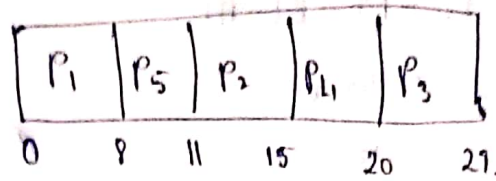 P1 P5 P2 P4 P3
0 8 11 15 20 29